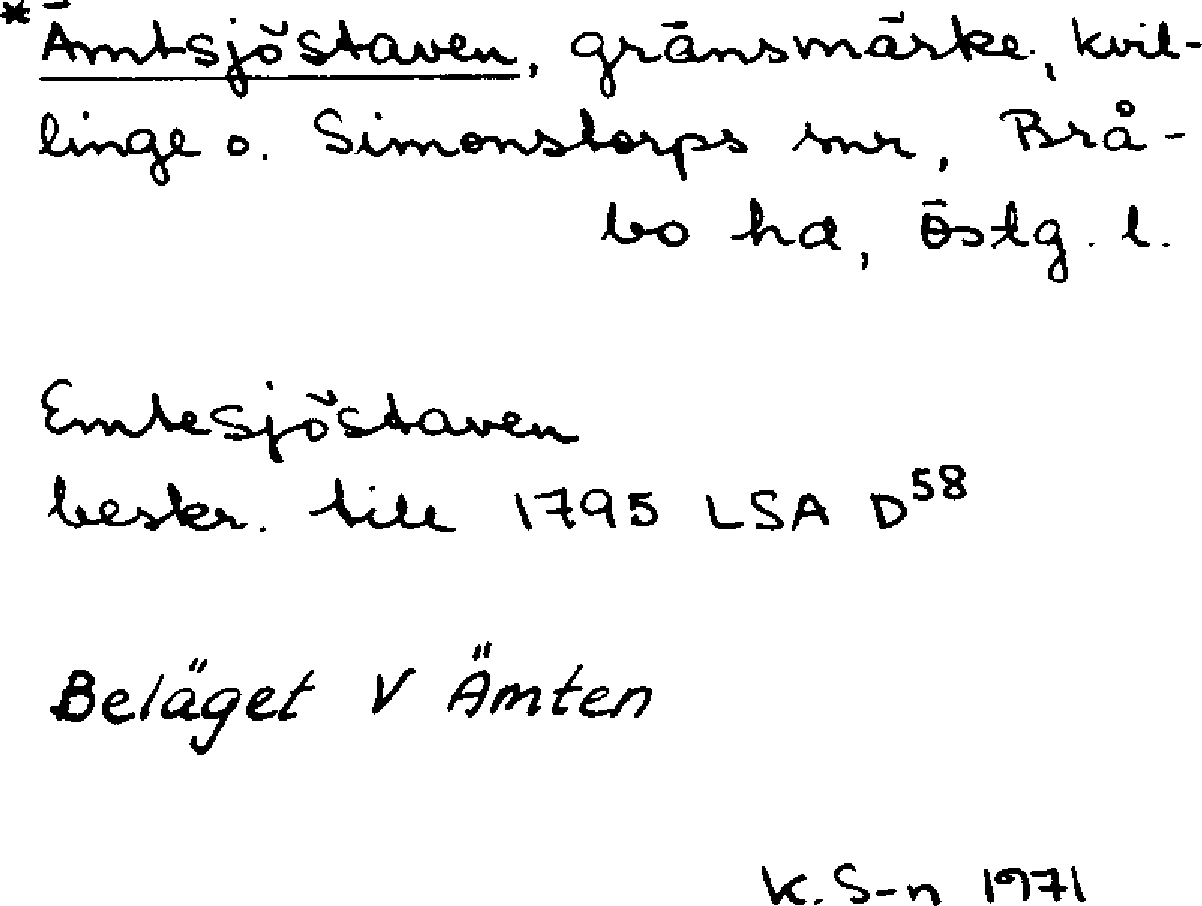 *Ämtsjöstaven, gränsmärke, Kvil-
linge o. Simonstorps snr, Brå-
bo hd, Östg. l.
Emtesjöstaven
beskr. till 1795 LSA D58
Beläget V Ämten
K. S-n 1971